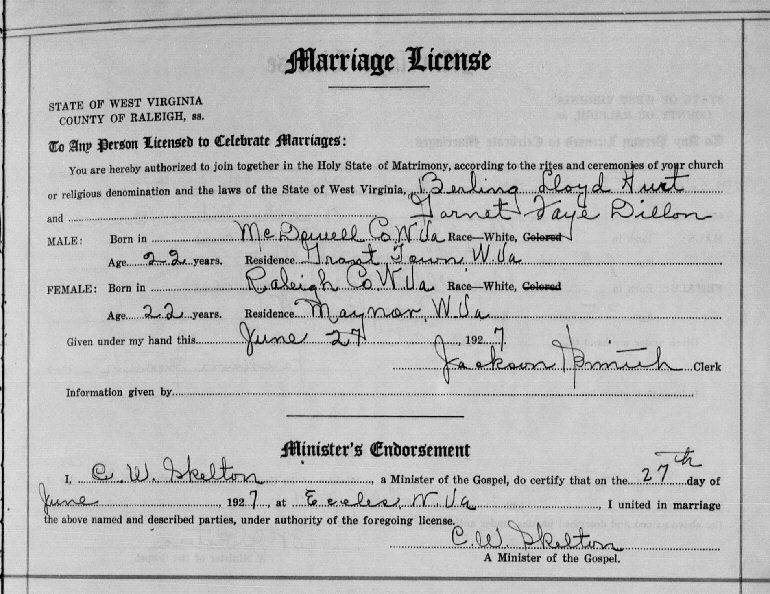 Marriage License
STATE OF WEST VIRGINIA
COUNTY OF RALEIGH, ss.
To Any Person Licensed to Celebrate Marriages:
You are hereby authorized to join together in the Holy State of Matrimony, according to the rites and ceremonies of your church
or religious denomination and the laws of the State of West Virginia, Berling Lloyd Hurt
and Garnet Faye Dillon
MALE: Born in McDowell Co W Va Race—White, Colored
Age 22 years. Residence Grant Town W. Va
FEMALE: Born in Raleigh Co. W Va Race—White, Colored
Age 22 years. Residence Maynor, W. Va
Given under my hand this June 27, 1927.
Jackson Smith Clerk
Information given by
Minister's Endorsement
I, C. W. Skelton, a Minister of the Gospel, do certify that on the 27th day of
June, 1927, at Eccles, W Va, I united in marriage
the above named and described parties, under authority of the foregoing license.
C. W. Skelton
A Minister of the Gospel.